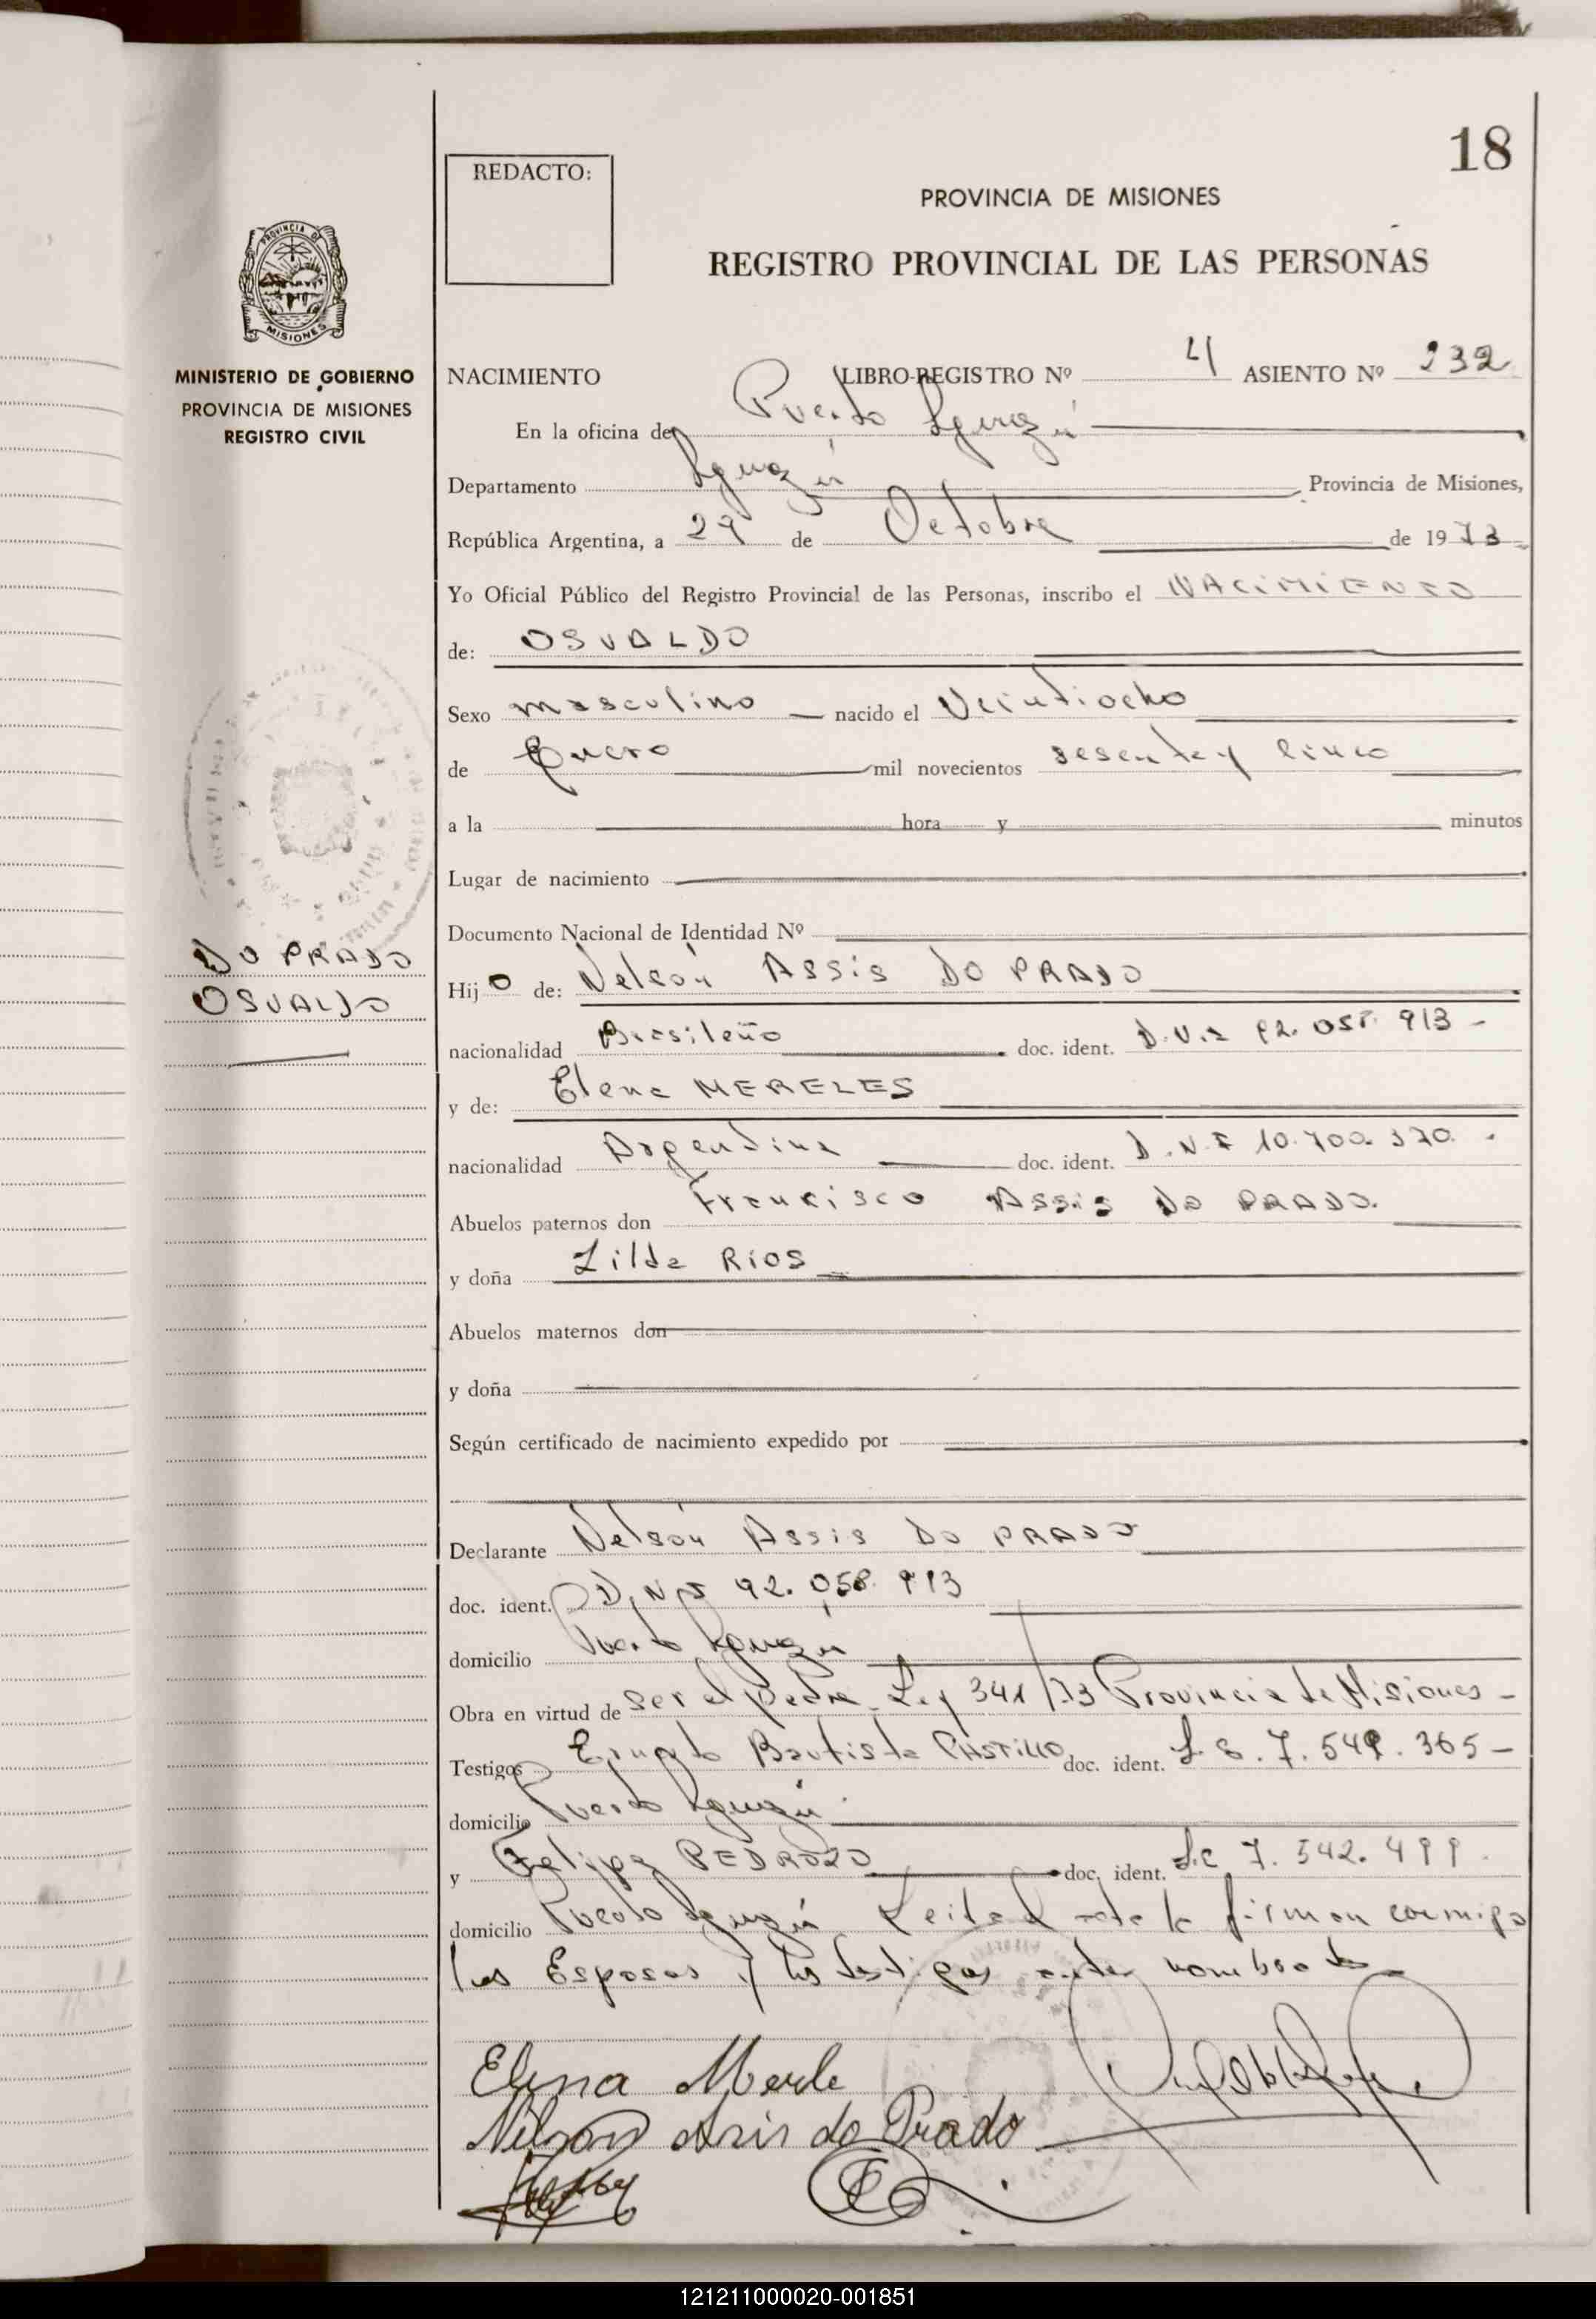 18
REDACTO:
PROVINCIA DE MISIONES
REGISTRO PROVINCIAL DE LAS PERSONAS
PROVINCIA DE
MISIONES
MINISTERIO DE GOBIERNO
PROVINCIA DE MISIONES
REGISTRO CIVIL
NACIMIENTO LIBRO-REGISTRO Nº 4 ASIENTO Nº 232
En la oficina de Puerto Iguazú
Departamento Iguazú Provincia de Misiones,
República Argentina, a 29 de Octobre de 1973
Yo Oficial Público del Registro Provincial de las Personas, inscribo el NACIMIENTO
de: OSVALDO
Sexo masculino nacido el Veintiocho
de Enero mil novecientos sesenta y cinco
a la hora y minutos
Lugar de nacimiento
Documento Nacional de Identidad Nº
DO PRADO
OSVALDO
Hijo de: Nelsón Assis DO PRADO
nacionalidad Brasileño doc. ident. 913
y de: Elena MERELES
nacionalidad Argentina doc. ident. D.N.I 10.700.370.
Abuelos paternos don Francisco Assis Do PRADO.
y doña Zilda RIOS
Abuelos maternos don
y doña
Según certificado de nacimiento expedido por
Declarante Nelsón Assis Do PRADO
doc. ident. D.N.I 92.058.913
domicilio Puerto Iguazú
Obra en virtud de ser el padre Ley 341/73 Provincia de Misiones
Testigos Bautista CASTILLO doc. ident. 365
domicilio Puerto Iguazú
y Felipe PEDROZO doc. ident. 7.542.499
domicilio Puerto Iguazú Leida el acta la firman conmigo
los Esposos y los testigos antes nombrados
Elena Merele
Nelson Asis do Prado
121211000020-001851